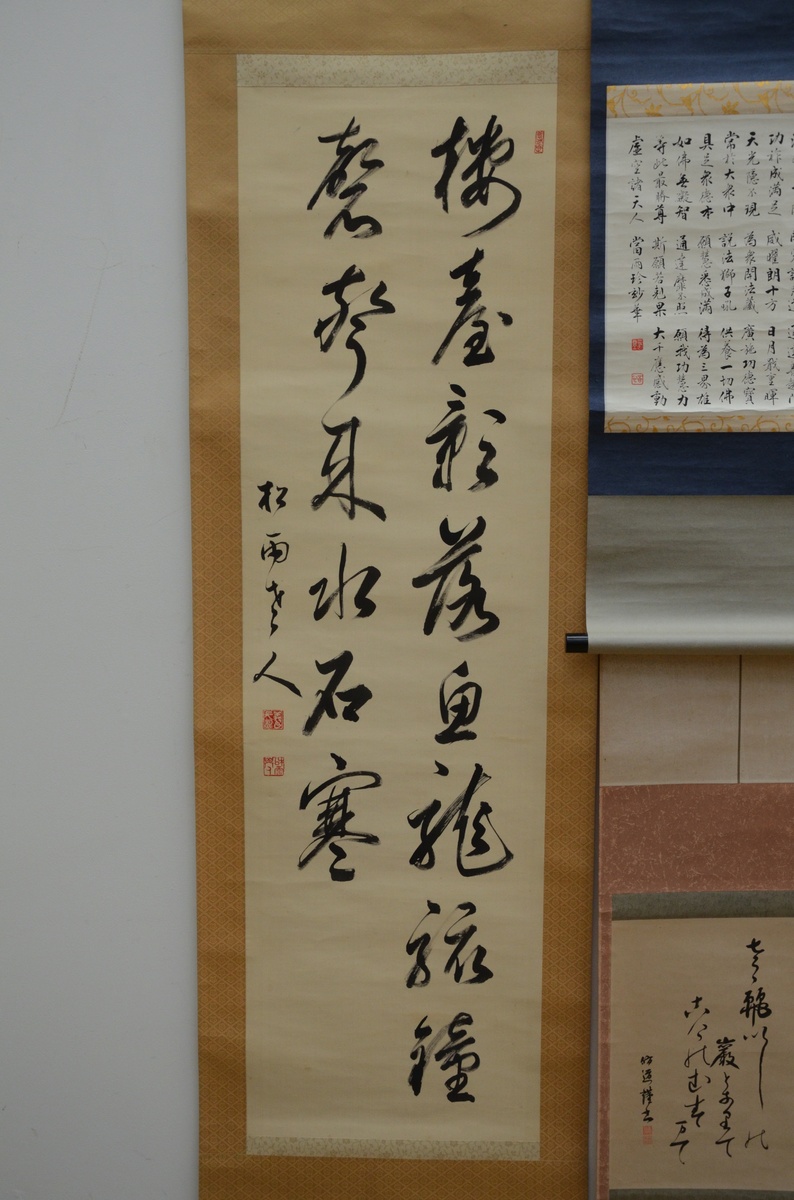 樓臺影落魚龍駭鐘
磬聲来水石寒
松雨老人
功祚成満足 威曜朗十方 日月戢重暉
天光隠不現 為衆開法蔵 廣施功徳寶
常於大衆中 説法獅子吼 供養一切佛
具足衆徳本 願慧悉成満 得為三界雄
如佛無礙智 通達靡不照 願我功慧力
等此最勝尊 斯願若剋果 大千應感動
虚空諸天人 當雨珍妙華